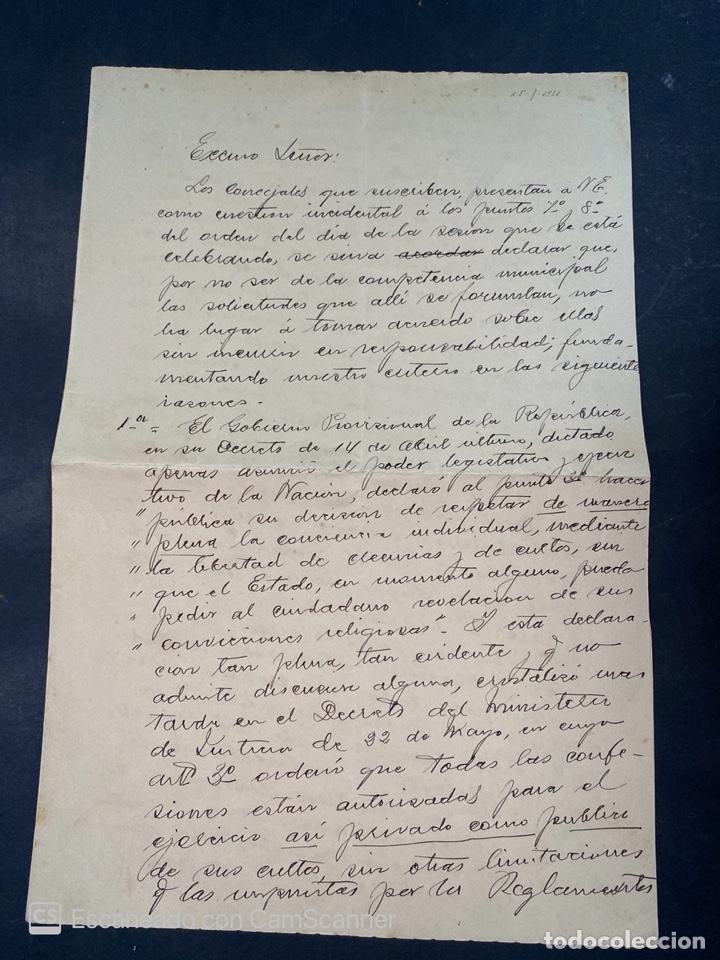 15-7-1931
Excmo Señor:
Los concejales que suscriben, presentan á V.E.
como cuestion incidental á los puntos 7º y 8º
del orden del dia de la sesion que se está
celebrando, se sirva acordar declarar que,
por no ser de la competencia municipal
las solicitudes que alli se formulan, no
ha lugar á tomar acuerdo sobre ellas
sin incurrir en responsabilidad; funda-
mentando nuestro criterio en las siguientes
razones.-
1ª = El Gobierno Provisional de la República,
en su Decreto de 14 de Abril último, dictado
apenas asumir el poder legislativo y ejecu
tivo de la Nación, declaró al punto "hacer
" pública su decision de respetar de manera
" plena la conciencia individual, mediante
" la libertad de creencias y de cultos, sin
" que el Estado, en momento alguno, pueda
" pedir al ciudadano revelacion de sus
" convicciones religiosas". Y esta declara-
cion tan plena, tan evidente, q no
admite discusion alguna, cristalizó mas
tarde en el Decreto del Ministerio
de Justicia de 22 de Mayo, en cuyo
artº 3º ordenó que todas las confe-
siones están autorizadas para el
ejercicio así privado como publico
de sus cultos, sin otras limitaciones
q las impuestas por los Reglamentos
CS Escaneado con CamScanner
todocoleccion